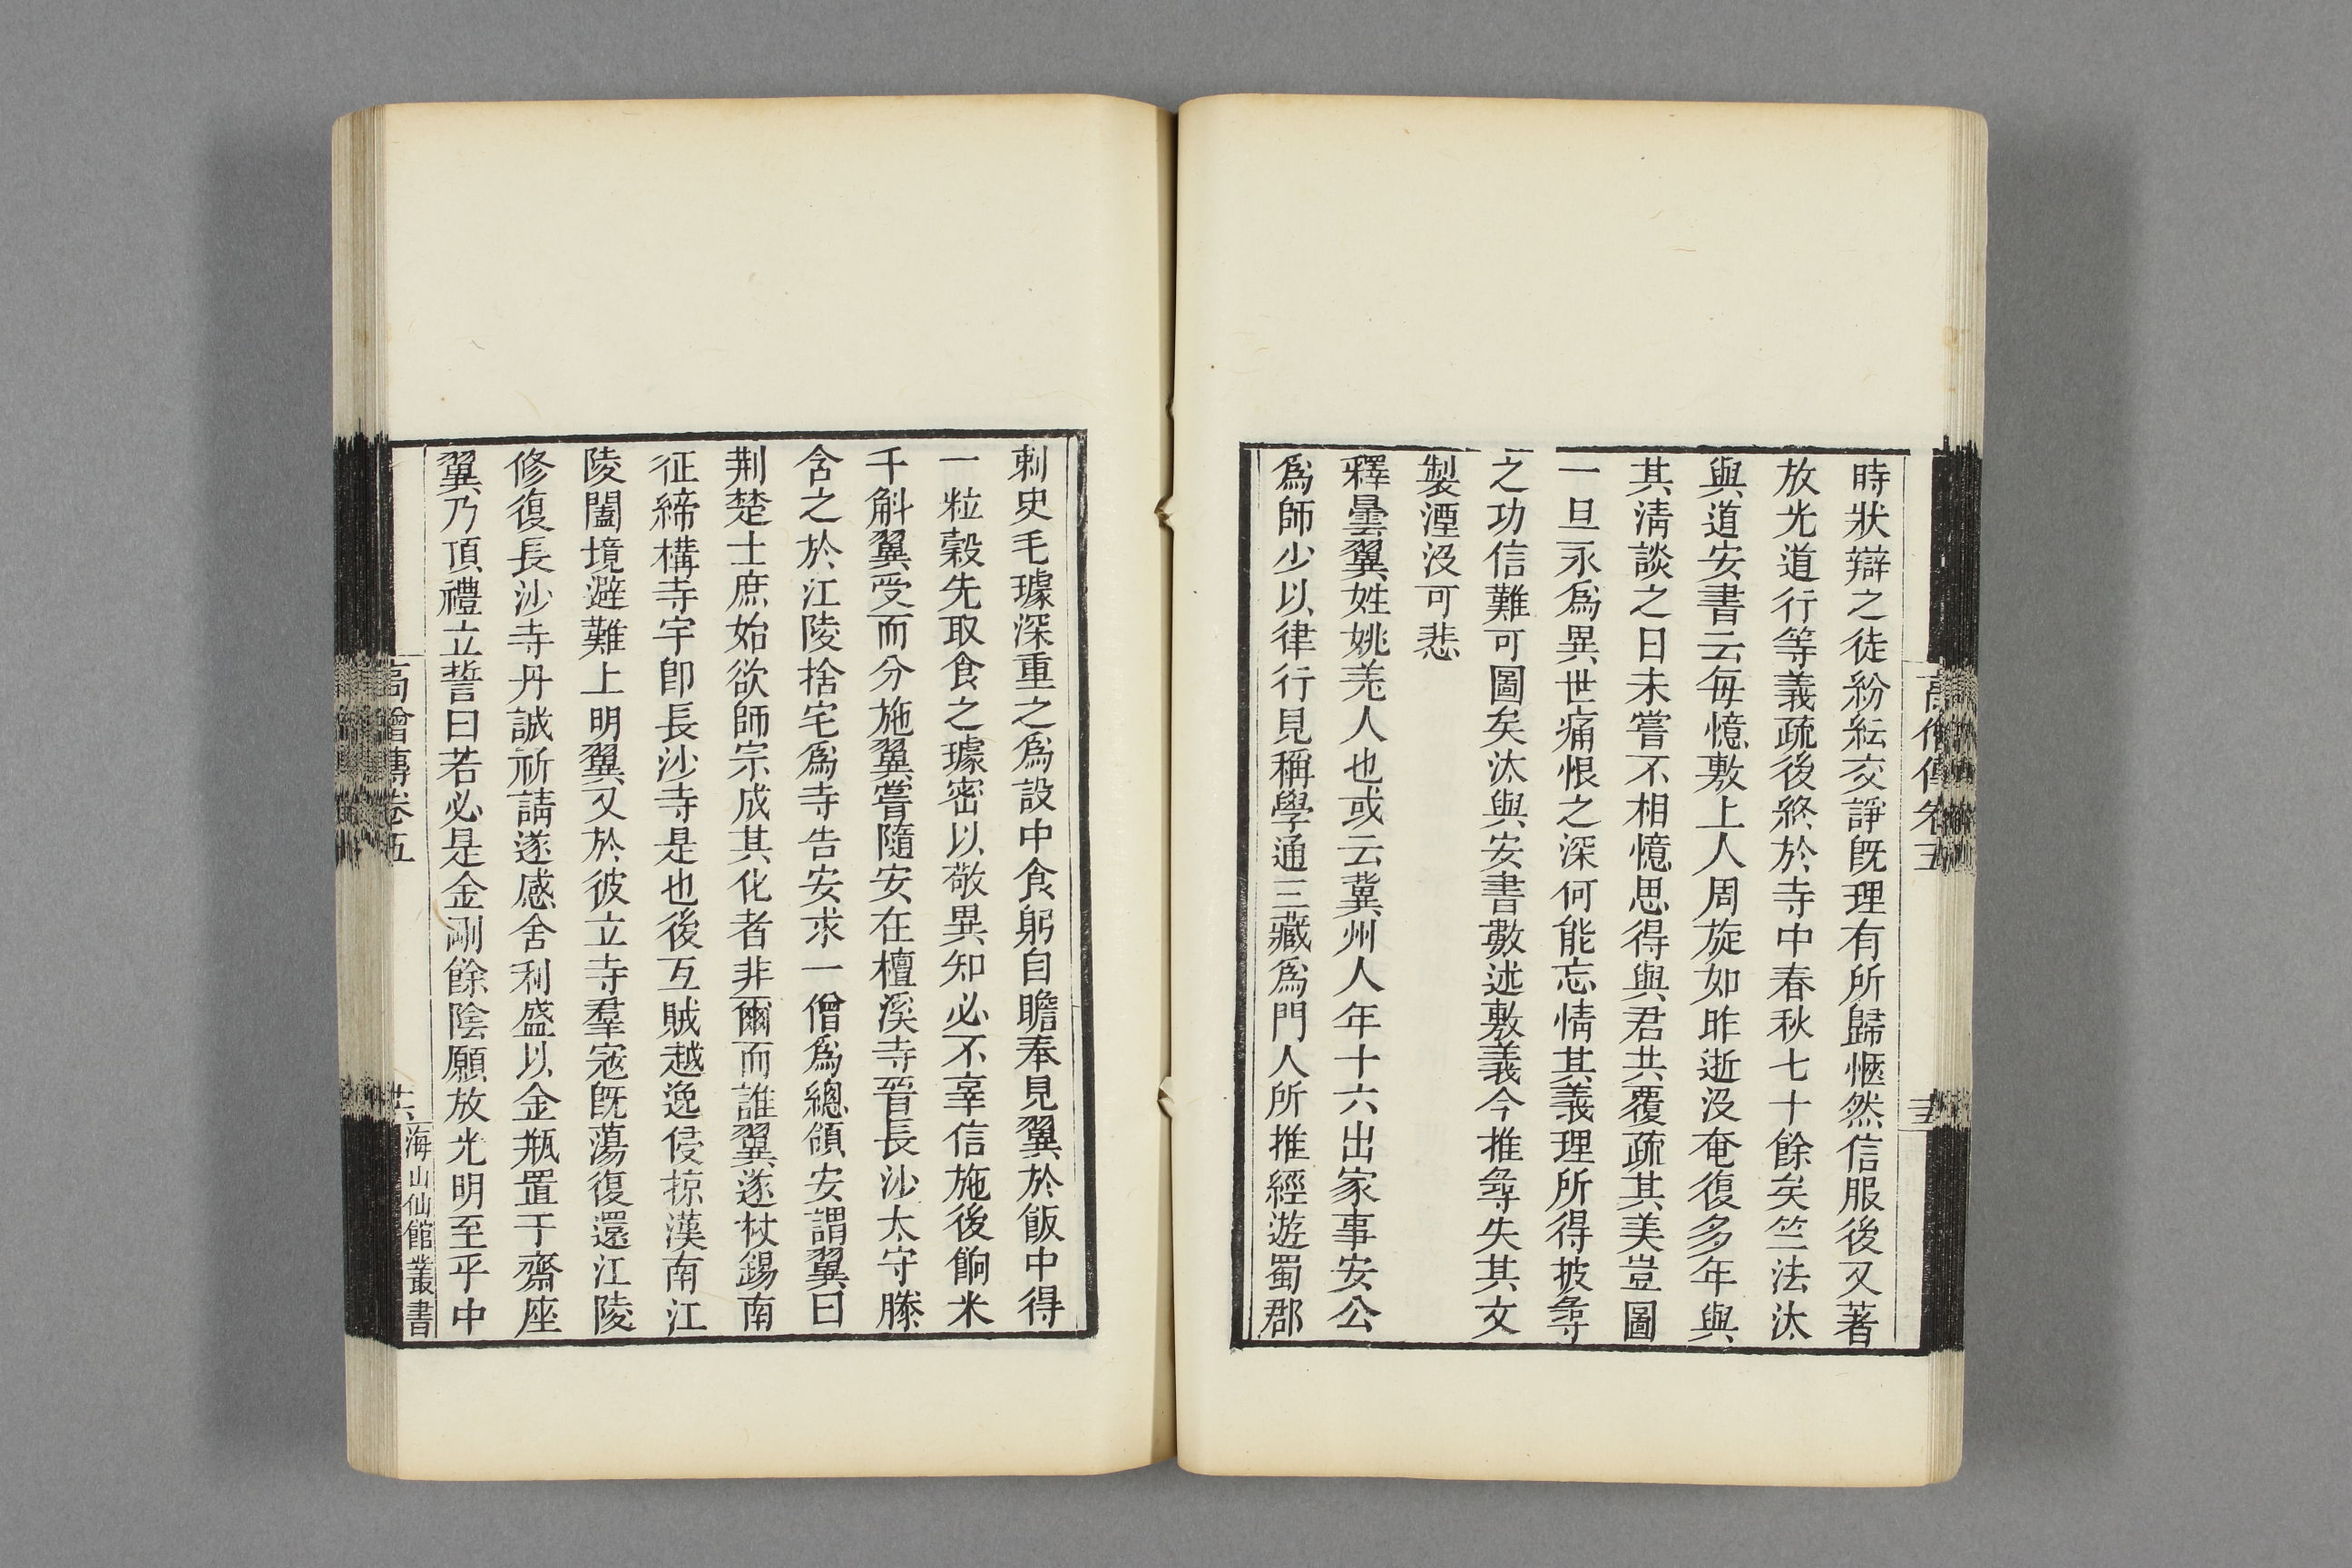 高僧傳卷五
時狀辯之徒紛紜交諍旣理有所歸愜然信服後又著
放光道行等義疏後終於寺中春秋七十餘矣竺法汰
與道安書云每憶敷上人周旋如昨逝沒奄復多年與
其淸談之日未嘗不相憶思得與君共覆疏其美豈圖
一旦永爲異世痛恨之深何能忘情其義理所得披尋
之功信難可圖矣汰與安書數述敷義今推尋失其文
製湮沒可悲
釋曇翼姓姚羌人也或云冀州人年十六出家事安公
爲師少以律行見稱學通三藏爲門人所推經遊蜀郡
刺史毛璩深重之爲設中食躬自瞻奉見翼於飯中得
一粒穀先取食之璩密以敬異知必不辜信施後餉米
千斛翼受而分施翼嘗隨安在檀溪寺晉長沙太守滕
含之於江陵捨宅爲寺告安求一僧爲總領安謂翼曰
荆楚士庶始欲師宗成其化者非爾而誰翼遂杖錫南
征締構寺宇卽長沙寺是也後互賊越逸侵掠漢南江
陵闔境避難上明翼又於彼立寺羣寇旣蕩復還江陵
修復長沙寺丹誠祈請遂感舍利盛以金瓶置于齋座
翼乃頂禮立誓曰若必是金剛餘陰願放光明至乎中
高僧傳卷五
海山仙館叢書